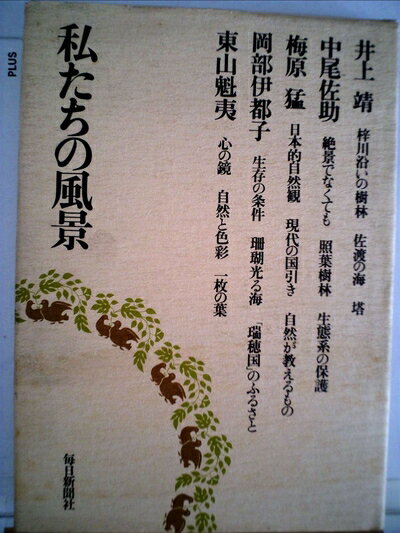 井上 靖 梓川沿いの樹林 佐渡の海 塔
中尾佐助 絶景でなくても 照葉樹林 生態系の保護
梅原 猛 日本的自然観 現代の国引き 自然が教えるもの
岡部伊都子 生存の条件 珊瑚光る海 「瑞穂国」のふるさと
東山魁夷 心の鏡 自然と色彩 一枚の葉
私たちの風景
毎日新聞社
PLUS